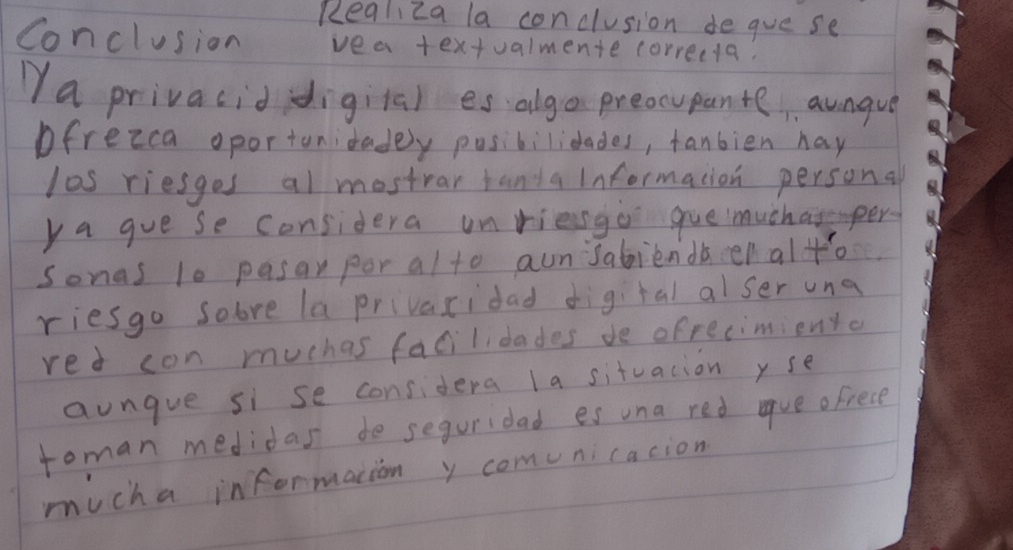 Realiza la conclusion de que se
Conclusion vea textualmente correcta.
Ya privacid digital es algo preocupante, aunque
Ofrezca oportunidades y posibilidades, tanbien hay
los riesgos al mostrar tanta Informacion personal
ya que se considera un riesgo que muchas per-
sonas lo pasar por alto aun sabiendo el alto
riesgo sobre la privacidad digital al ser una
red con muchas facilidades de ofrecimiento
aunque si se considera la situación y se
toman medidas de seguridad es una red que ofrece
mucha información y comunicacion